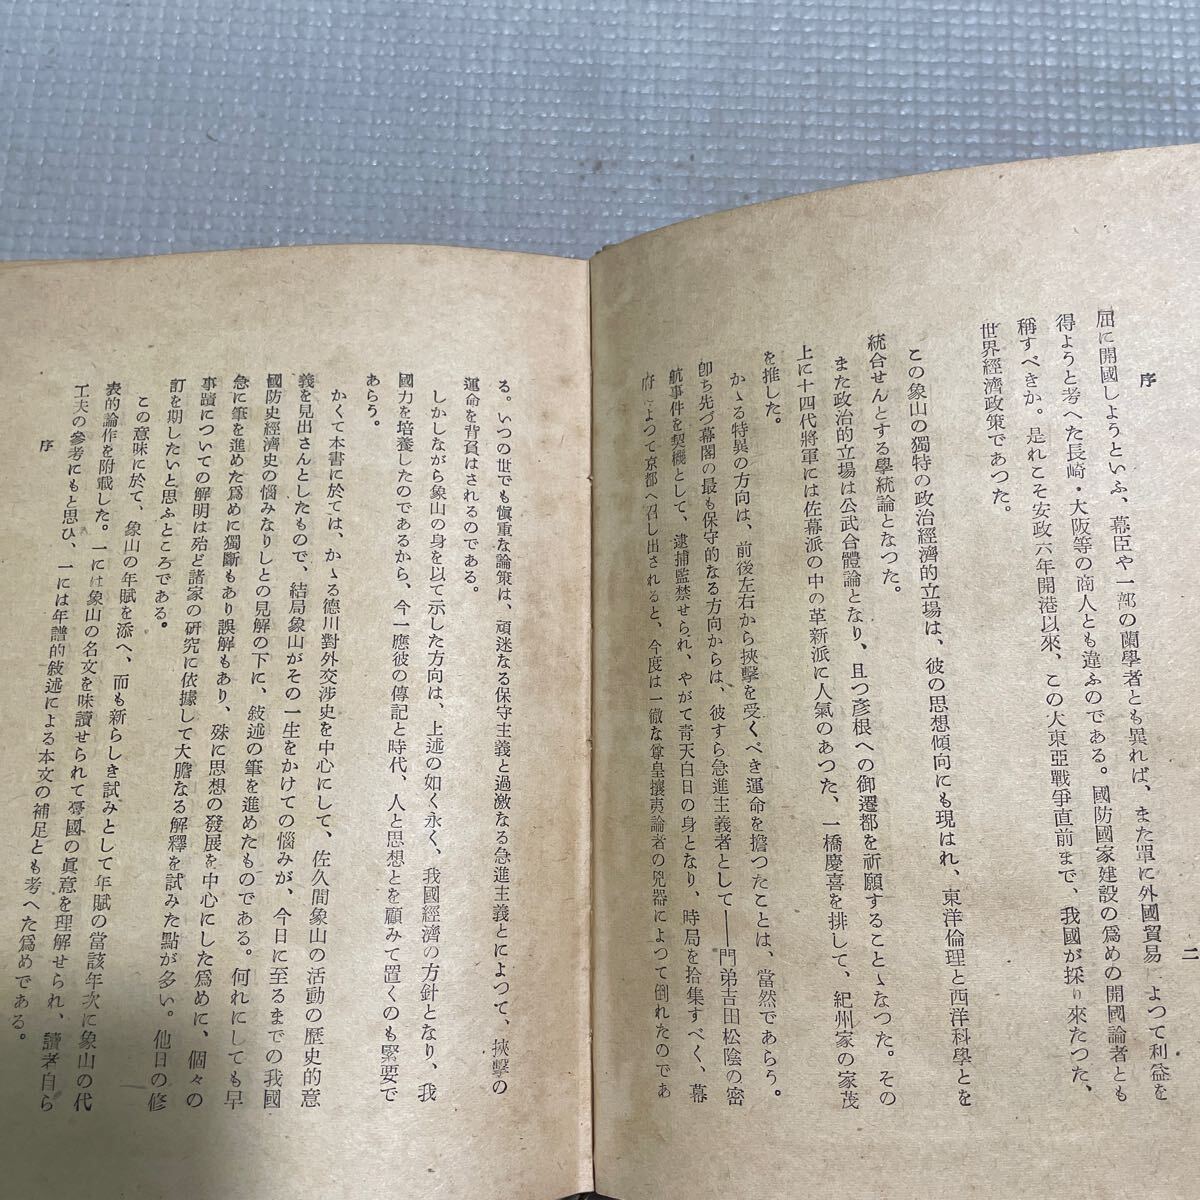 序
二
屈に開國しようといふ、幕臣や一部の蘭學者とも異れば、また單に外國貿易によつて利益を
得ようと考へた長崎・大阪等の商人とも違ふのである。國防國家建設の爲めの開國論者とも
稱すべきか。是れこそ安政六年開港以來、この大東亞戰爭直前まで、我國が採り來たつた、
世界經濟政策であつた。
この象山の獨特の政治經濟的立場は、彼の思想傾向にも現はれ、東洋倫理と西洋科學とを
統合せんとする學統論となつた。
また政治的立場は公武合體論となり、且つ彦根への御遷都を祈願することゝなつた。その
上に十四代將軍には佐幕派の中の革新派に人氣のあつた、一橋慶喜を排して、紀州家の家茂
を推した。
かゝる特異の方向は、前後左右から挾擊を受くべき運命を擔つたことは、當然であらう。
卽ち先づ幕閣の最も保守的なる方向からは、彼すら急進主義者として――門弟吉田松陰の密
航事件を契機として、逮捕監禁せられ、やがて靑天白日の身となり、時局を拾集すべく、幕
府によつて京都へ召し出されると、今度は一徹な尊皇攘夷論者の兇器によつて倒れたのであ
る。いつの世でも愼重な論策は、頑迷なる保守主義と過激なる急進主義とによつて、挾擊の
運命を背負はされるのである。
しかしながら象山の身を以て示した方向は、上述の如く永く、我國經濟の方針となり、我
國力を培養したのであるから、今一應彼の傳記と時代、人と思想とを顧みて置くのも緊要で
あらう。
かくて本書に於ては、かゝる德川對外交涉史を中心にして、佐久間象山の活動の歷史的意
義を見出さんとしたもので、結局象山がその一生をかけての惱みが、今日に至るまでの我國
國防史經濟史の惱みなりしとの見解の下に、敍述の筆を進めたものである。何れにしても早
急に筆を進めた爲めに獨斷もあり誤解もあり、殊に思想の發展を中心にした爲めに、個々の
事蹟についての解明は殆ど諸家の硏究に依據して大膽なる解釋を試みた點が多い。他日の修
訂を期したいと思ふところである。
この意味に於て、象山の年賦を添へ、而も新らしき試みとして年賦の當該年次に象山の代
表的論作を附載した。一には象山の名文を味讀せられて憂國の眞意を理解せられ、讀者自ら
工夫の參考にもと思ひ、一には年譜的敍述による本文の補足とも考へた爲めである。
序